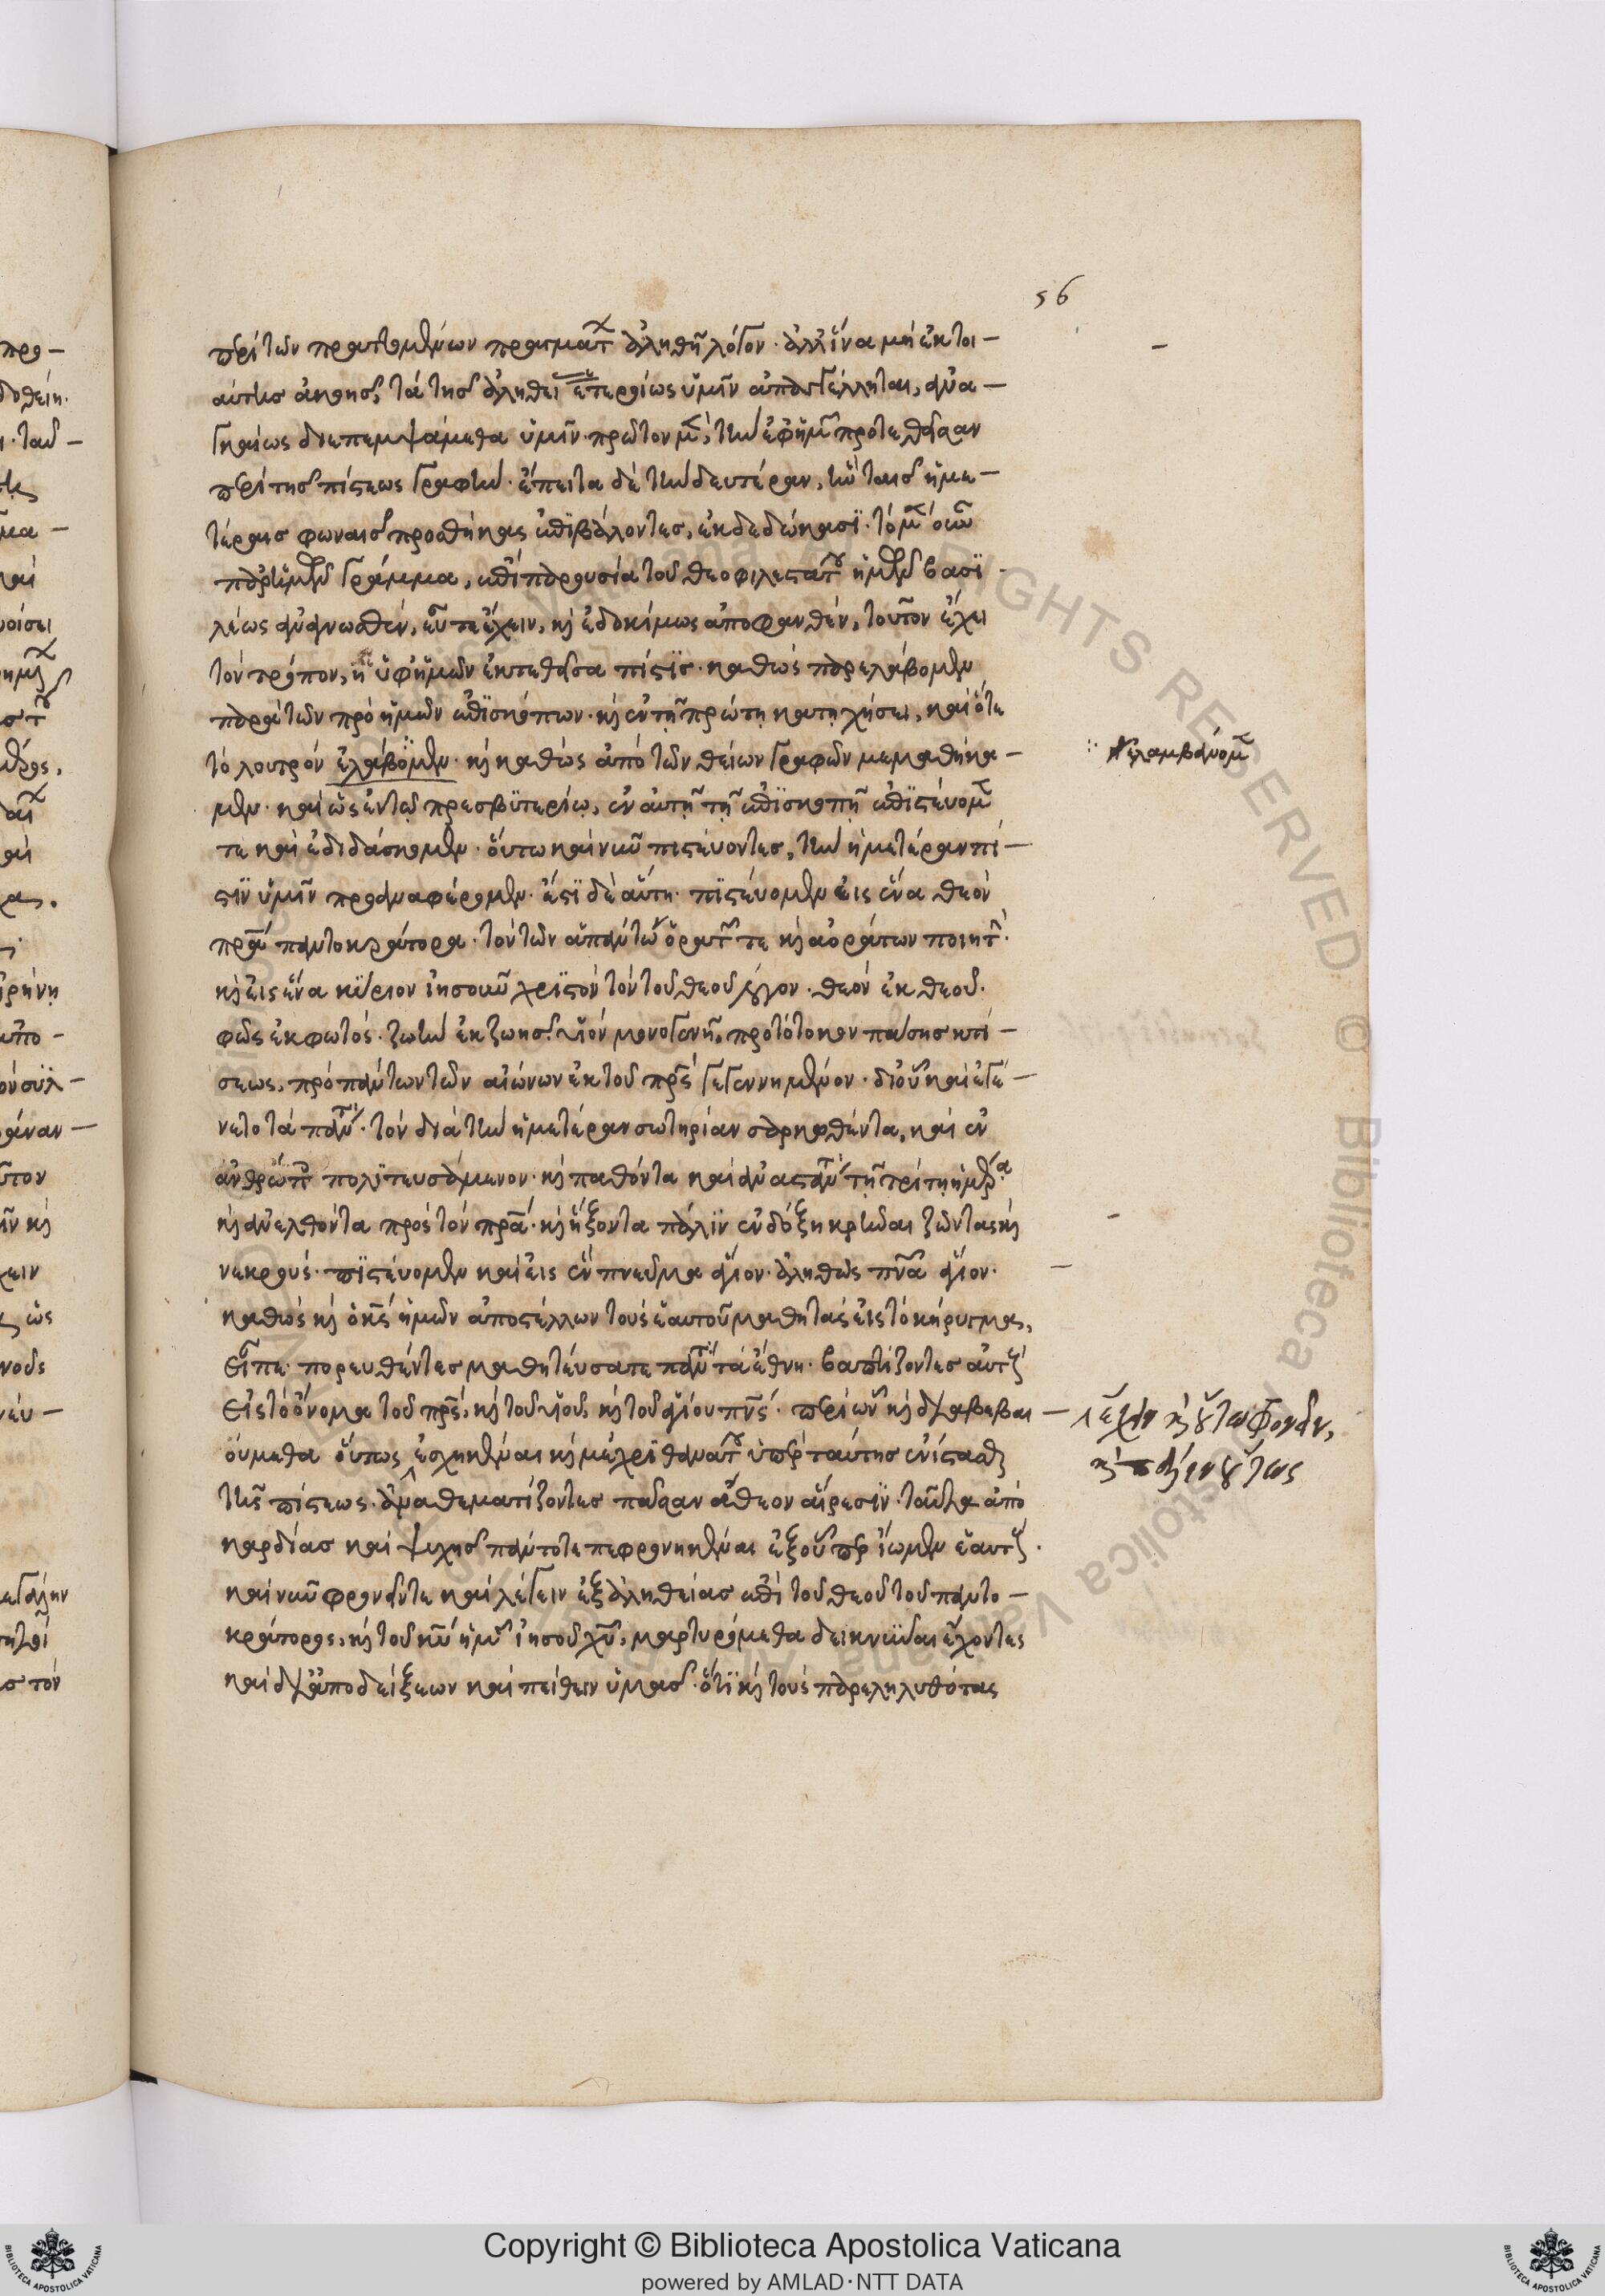 56
περὶ τῶν πραττομένων πραγμάτ ἀληθῆ λόγον· ἀλλ' ἵνα μὴ ἐκ τοι–
αύτης ἀκοῆς, τὰ τῆς ἀληθεί ἑτεροίως ὑμῖν ἀπαγγέλληται, ἀνα–
γκαίως διεπεμψάμεθα ὑμῖν· πρῶτον μ, τὴν ἐφ' ἡμ προτεθεῖσαν
περὶ τῆς πίστεως γραφὴν· ἔπειτα δὲ τὴν δευτέραν, ἣν ταῖς ἡμε–
τέραις φωναῖς προσθήκας ἐπϊβάλοντες, ἐκδεδώκασϊ· τὸ μ οὖν
παρ' ἡμῶν γράμμα, ἐπὶ παρουσία τοῦ θεοφιλεστάτου ἡμῶν βασϊ
λέως ἀναγνωσθέν, εὖ τε ἔχειν, κὶ ἐδοκίμως ἀποφανθέν, τοῦτον ἔχει
τὸν τρόπον, ἡ ὑφ' ἡμῶν ἐκτεθεῖσα πίστϊς· καθὼς παρελάβομεν
παρὰ τῶν πρὸ ἡμῶν ἐπϊσκόπων· κὶ ἐν τῇ πρώτῃ κατηχήσει, καὶ ὅτε
τὸ λουτρὸν ἐλαβομεν· κὶ καθὼς ἀπὸ τῶν θείων γραφῶν μεμαθήκα–
ελαμβάνομ
μεν· καὶ ὡς ἐν τῷ πρεσβϋτερίῳ, ἐν αὐτῇ τῇ ἐπϊσκοπῇ ἐπϊστεύομ
τε καὶ ἐδιδάσκομεν· οὕτω καὶ νῦν πιστεύοντες, τὴν ἡμετέραν πί–
στϊν ὑμῖν προσαναφέρομεν· ἔστϊ δὲ αὕτη· πϊστεύομεν εἰς ἕνα θεὸν
πρα παντοκράτορα· τὸν τῶν ἁπάντων ὁρατ τε κὶ ἀοράτων ποιητ·
κὶ εἰς ἕνα κϋριον ἰησοῦν χρϊστὸν τὸν τοῦ θεοῦ λόγον· θεὸν ἐκ θεοῦ·
φῶς ἐκ φωτός· ζωὴν ἐκ ζωῆς· υἱὸν μονογενῆ, πρωτότοκον πάσης κτί–
σεως, πρὸ πάντων τῶν αἰώνων ἐκ τοῦ πρς γεγεννημένον· δι' οὗ καὶ ἐγέ–
νετο τὰ παντ· τὸν διὰ τὴν ἡμετέραν σωτηρίαν σαρκωθέντα, καὶ ἐν
ἀνθρώπ πολϊτευσάμενον· κὶ παθόντα καὶ ἀναστάντ τῇ τρίτῃ ἡμέρα
κὶ ἀνελθόντα πρὸς τὸν πρα· κὶ ἥξοντα πάλϊν ἐν δόξῃ κρῖναι ζῶντας κὶ
νεκρούς· πϊστεύομεν καὶ εἰς ἓν πνεῦμα ἅγιον· ἀληθῶς πνα ἅγιον·
καθὼς κὶ ὁ κς ἡμῶν ἀποστέλλων τοὺς ἑαυτοῦ μαθητὰς εἰς τὸ κήρυγμα,
εἶπε· πορευθέντες μαθητεύσατε πάντα τὰ ἔθνη· βαπτίζοντες αὐτοὺς
εἰς τὸ ὄνομα τοῦ πρς, κὶ τοῦ υἱοῦ, κὶ τοῦ ἁγίου πνς· περὶ ὧν κὶ διαβεβαι–
ἔχειν κὶ οὕτω φρονεῖν,
κὶ πάλαι οὕτως
ούμεθα οὕτως ἐσχηκέναι κὶ μέχρϊ θανάτου ὑπὲρ ταύτης ἐνίστασθαι
τῆς πίστεως· ἀναθεματίζοντες πᾶσαν ἄθεον αἵρεσϊν· ταῦτα ἀπὸ
καρδίας καὶ ψυχῆς πάντοτε πεφρονηκέναι ἐξ οὗπερ ἴσμεν ἑαυτοὺς·
καὶ νῦν φρονεῖν τε καὶ λέγειν ἐξ ἀληθείας ἐπὶ τοῦ θεοῦ τοῦ παντο–
κράτορος, κὶ τοῦ κυ ἡμ ἰησοῦ χυ, μαρτυρόμεθα δεικνύναι ἔχοντες
καὶ δι' ἀποδείξεων καὶ πείθειν ὑμᾶς· ὅτϊ κὶ τοὺς παρεληλυθότας
Copyright © Biblioteca Apostolica Vaticana
powered by AMLAD·NTT DATA